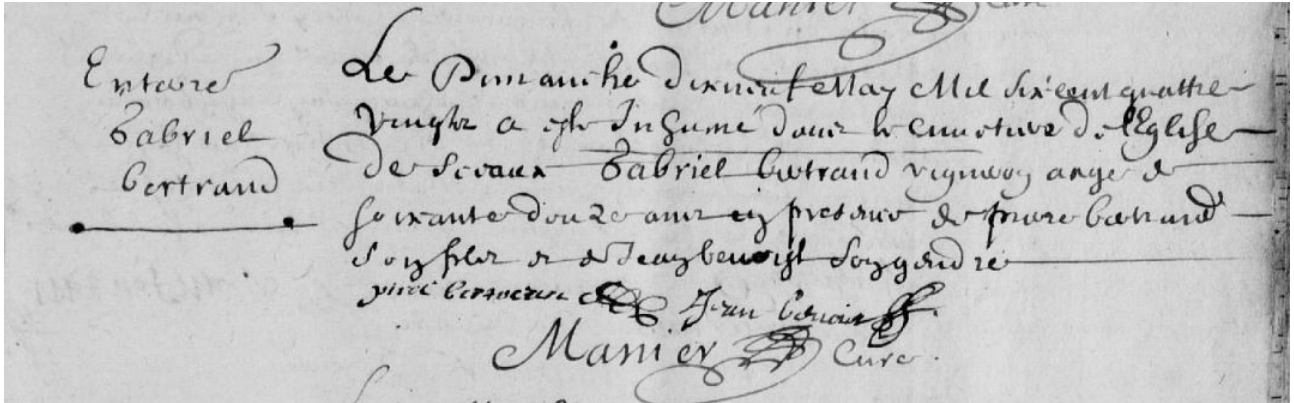 Manier Curé
Entaire
Gabriel
bertrand
Le Dimanche dixneuf May Mil six cent quattre
Vingtz a esté Inhumé dans le cimetiere de l'Eglise
De Sceaux Gabriel bertrand vigneron aagé de
soixante douze ans en presence de piere bertrand
son filz et de Jean benoist son gendre
piere bertrand Jean benoist
Manier Curé